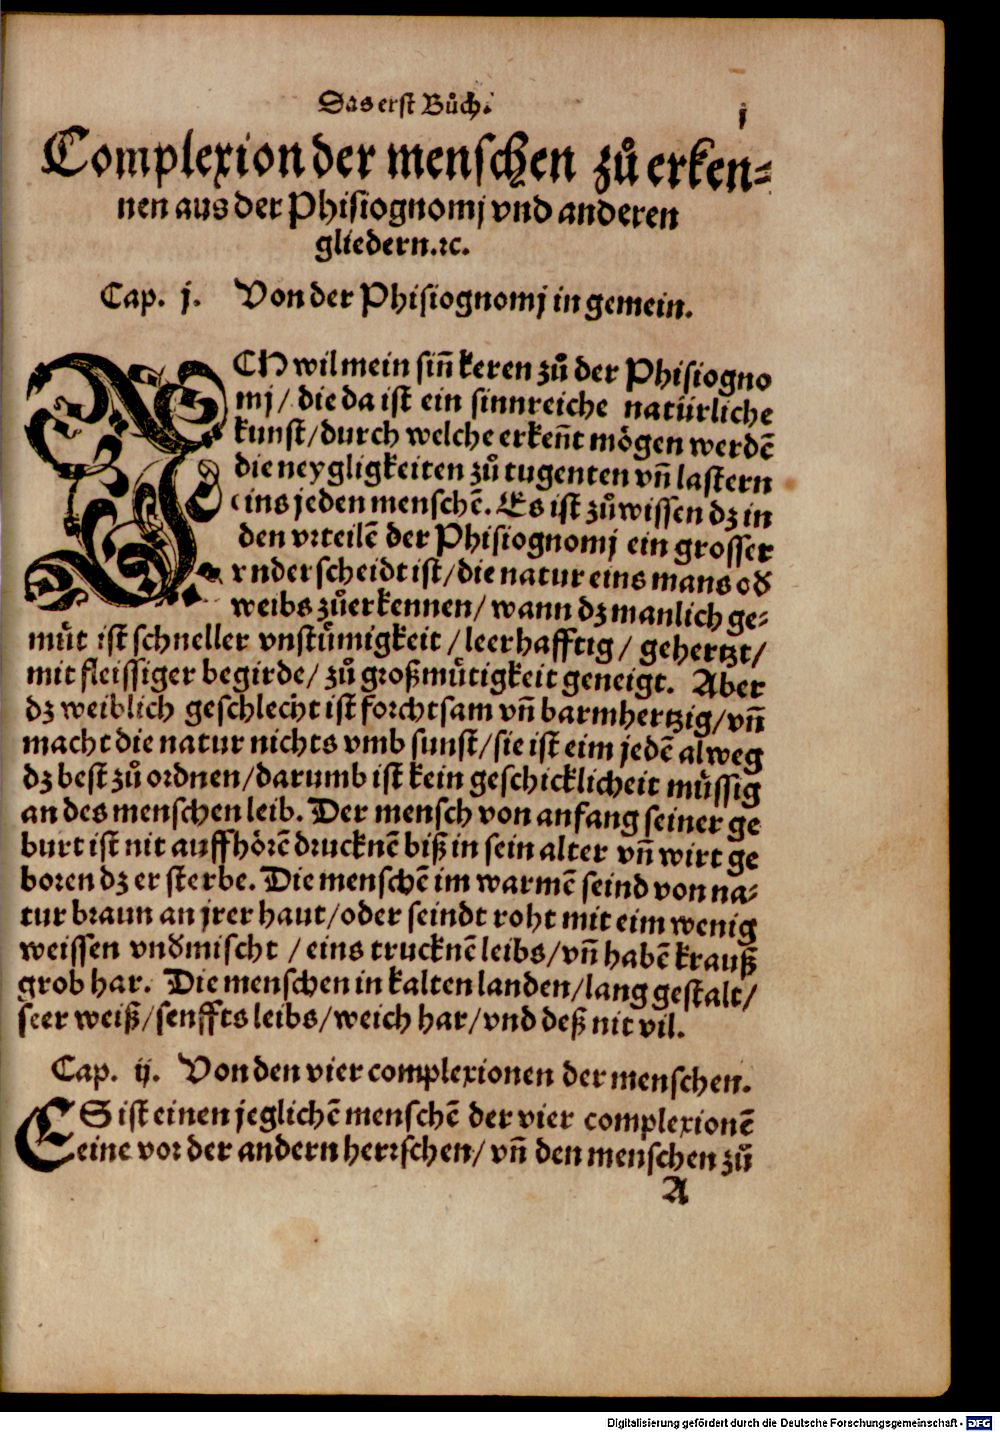 Das erst Bůch.
j
Complexion der menschen zů erken-
nen aus der Phisiognomj vnd anderen
gliedern.ꝛc.
Cap. j. Von der Phisiognomj in gemein.
ICH wil mein sin̄ keren zů der Phisiogno
mj/ die da ist ein sinnreiche natürliche
kunst/durch welche erken̄t mögen werdē
die neygligkeiten zů tugenten vn̄ lastern
eins jeden menschē. Es ist zůwissen dz in
den vrteilē der Phisiognomj ein grosser
vnderscheidt ist/die natur eins mans od
weibs zůerkennen/ wann dz manlich ge-
můt ist schneller vnstůmigkeit /leerhafftig/ gehertzt/
mit fleissiger begirde/ zů großmůtigkeit geneigt. Aber
dz weiblich geschlecht ist forchtsam vn̄ barmhertzig/vn̄
macht die natur nichts vmb sunst/sie ist eim jedē alweg
dz best zů ordnen/darumb ist kein geschicklicheit můssig
an des menschen leib. Der mensch von anfang seiner ge
burt ist nit auffhörē drucknē biß in sein alter vn̄ wirt ge
boren dz er sterbe. Die menschē im warmē seind von na-
tur braun an jrer haut/oder seindt roht mit eim wenig
weissen vndmischt /eins trucknē leibs/vn̄ habē krauß
grob har. Die menschen in kalten landen/lang gestalt/
seer weiß/senffts leibs/weich har/vnd deß nit vil.
Cap. ij. Von den vier complexionen der menschen.
ES ist einen jeglichē menschē der vier complexionē
eine vor der andern herrschen/ vn̄ den menschen zů
A
Digitalisierung gefördert durch die Deutsche Forschungsgemeinschaft - DFG